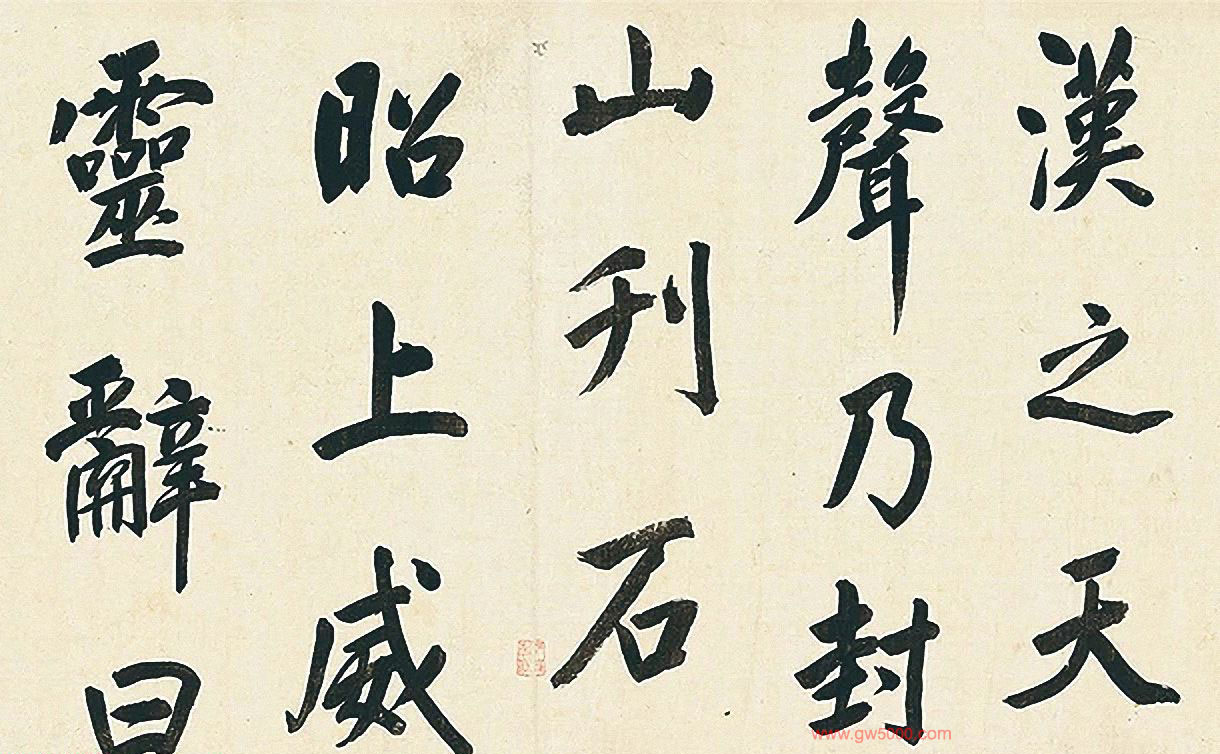 漢之天
聲乃封
山刋石
昭上威
靈辭曰
www.gw5000.com